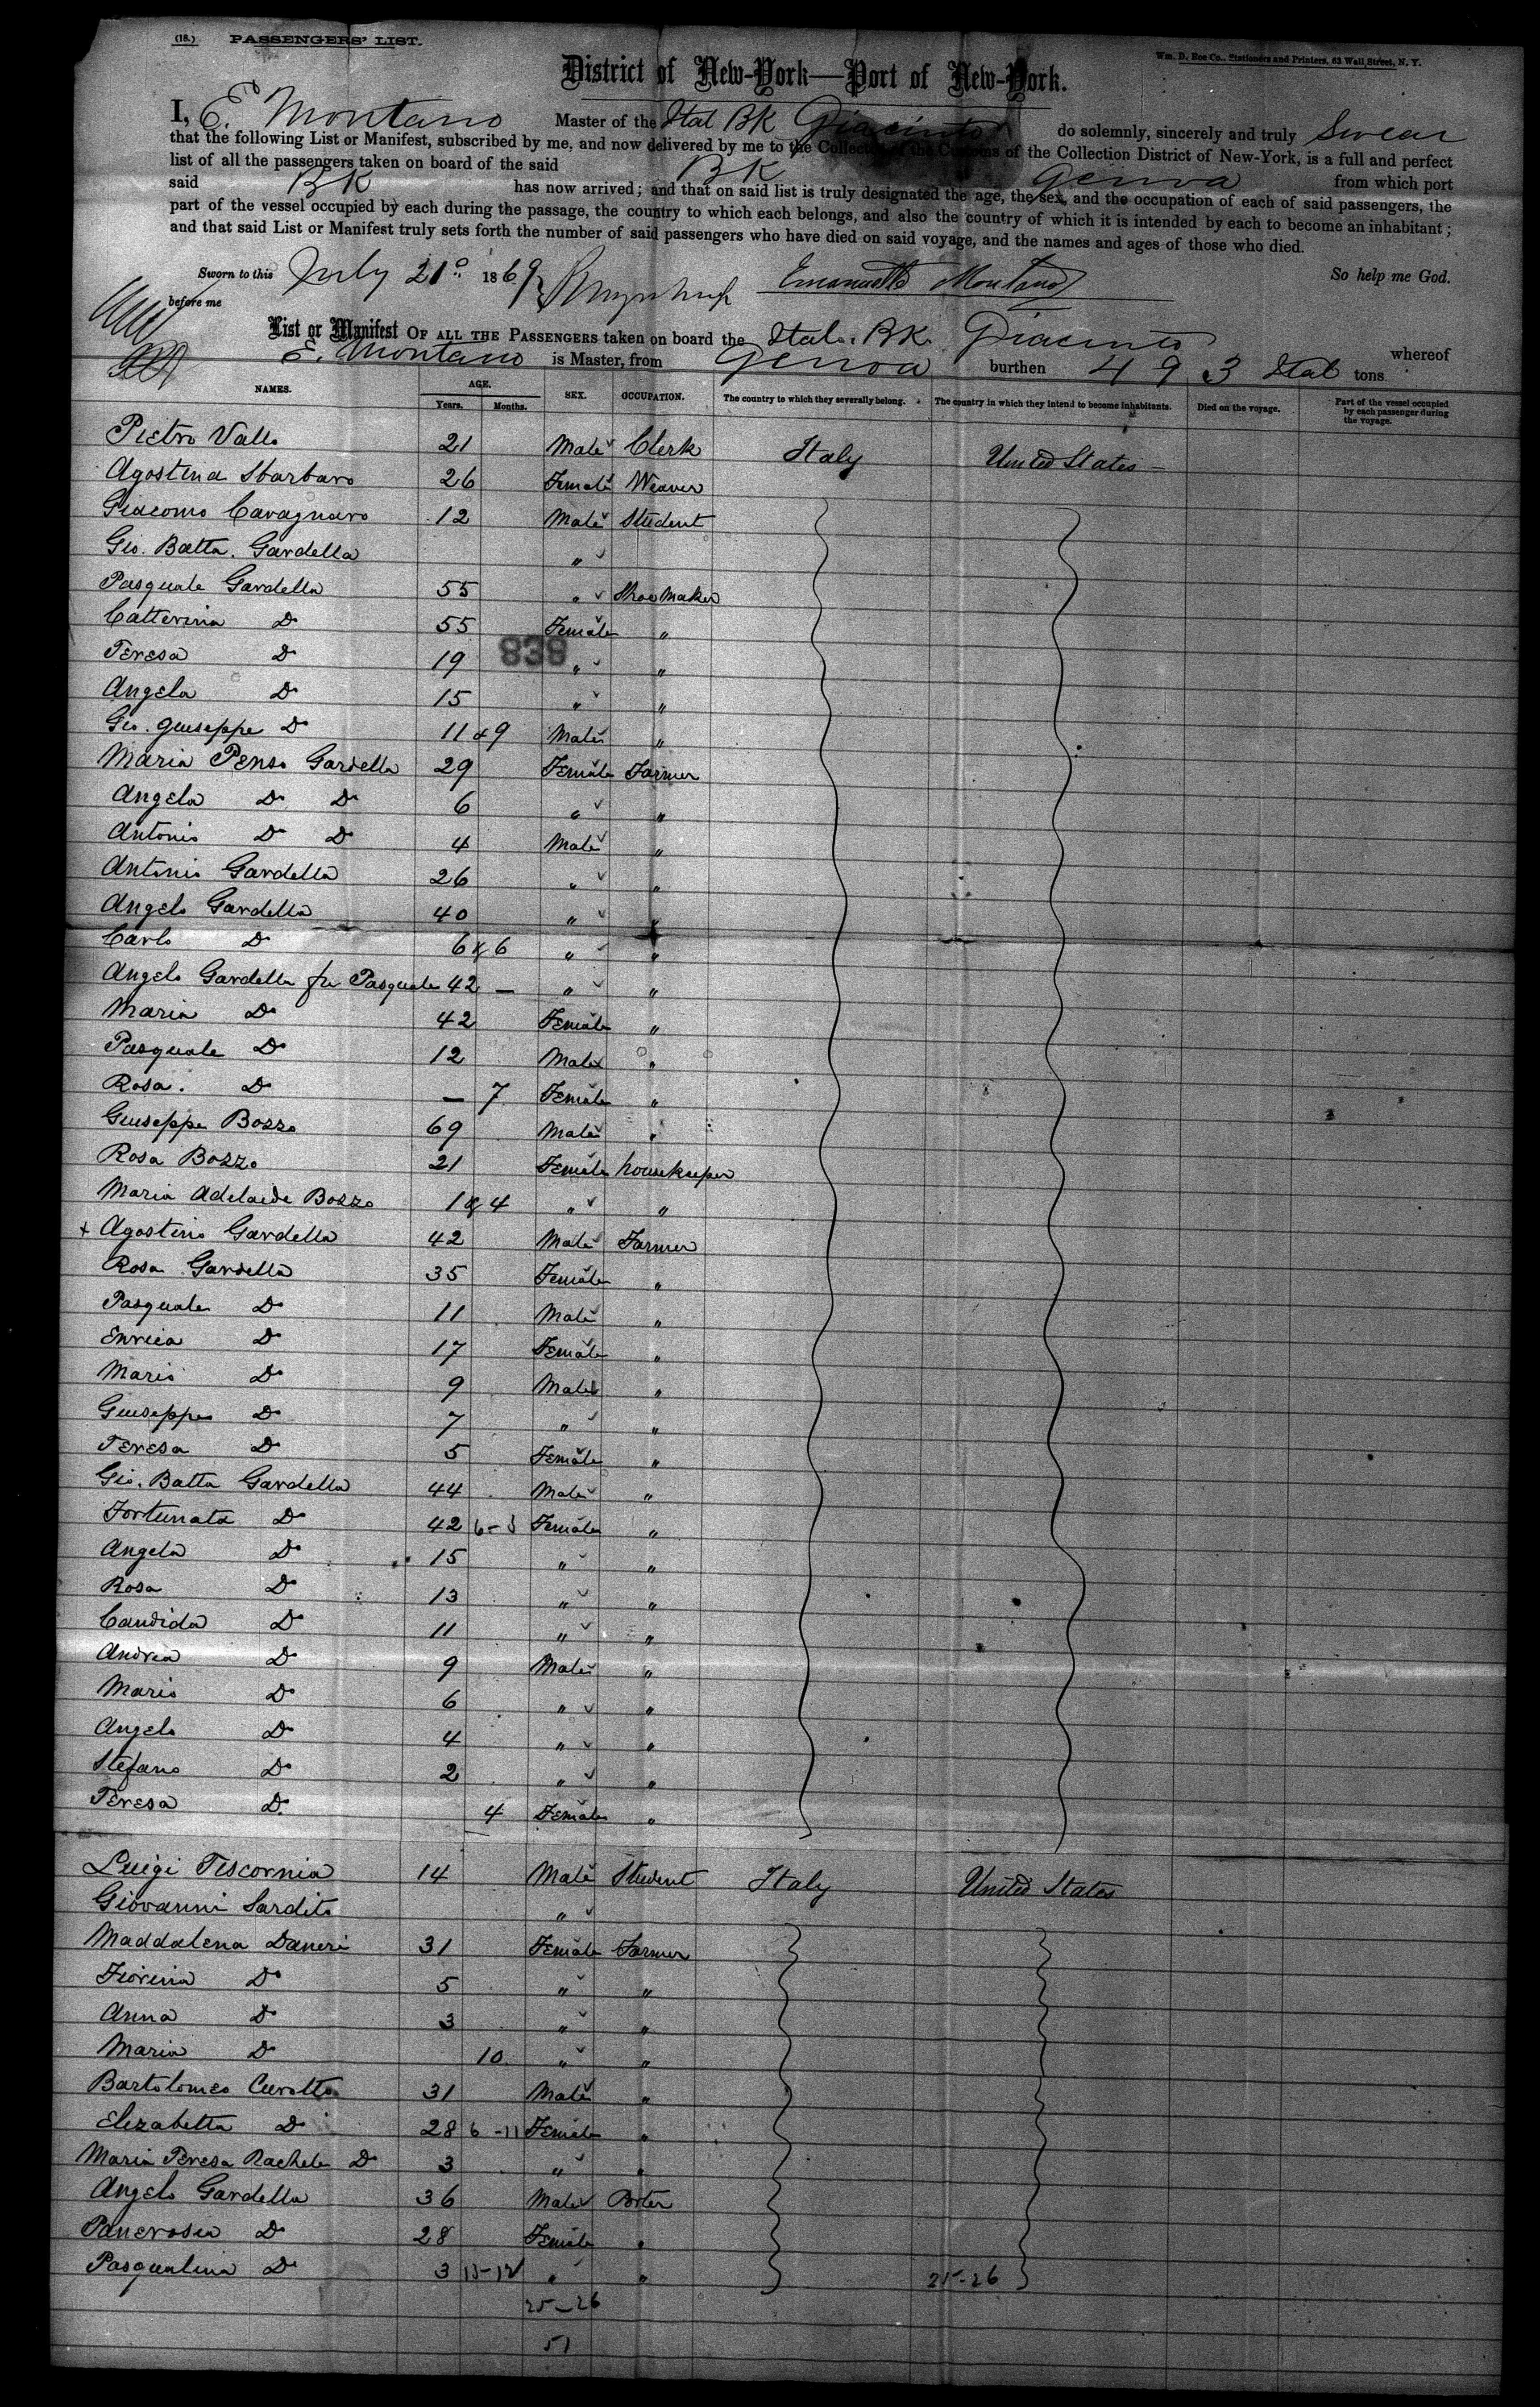 (18.) PASSENGERS' LIST.
Wm. D. Roe Co., Stationers and Printers, 63 Wall Street, N. Y.
District of New-York—Port of New-York.
I, E. Montano Master of the Ital BK Giacinto do solemnly, sincerely and truly Swear
that the following List or Manifest, subscribed by me, and now delivered by me to the Collector of the Customs of the Collection District of New-York, is a full and perfect
list of all the passengers taken on board of the said BK Genoa from which port
said BK has now arrived; and that on said list is truly designated the age, the sex, and the occupation of each of said passengers, the
part of the vessel occupied by each during the passage, the country to which each belongs, and also the country of which it is intended by each to become an inhabitant;
and that said List or Manifest truly sets forth the number of said passengers who have died on said voyage, and the names and ages of those who died.
Sworn to this July 21° 1869 Emanuelle Montano So help me God.
before me
List or Manifest OF ALL THE PASSENGERS taken on board the Ital. BK. Giacinto whereof
E. Montano is Master, from Genoa burthen 493 Ital tons
NAMES. AGE. SEX. OCCUPATION. The country to which they severally belong. The country in which they intend to become inhabitants. Died on the voyage. Part of the vessel occupied by each passenger during the voyage.
Years. Months.
Pietro Valle 21 Male Clerk Italy United States —
Agostina Sbarbaro 26 Female Weaver
Giacomo Cavagnaro 12 Male Student
Gio. Batta. Gardella "
Pasquale Gardella 55 " Shoe Maker
Catterina Do 55 Female "
838
Teresa Do 19 " "
Angela Do 15 " "
Gio. Giuseppe Do 11 & 9 Male "
Maria Penso Gardella 29 Female Farmer
Angela Do Do 6 " "
Antonio Do Do 4 Male "
Antonio Gardella 26 " "
Angelo Gardella 40 " "
Carlo Do 6 & 6 " "
Angelo Gardella fu Pasquale 42 — " "
Maria Do 42 Female "
Pasquale Do 12 Male "
Rosa. Do — 7 Female "
Giuseppe Bozzo 69 Male "
Rosa Bozzo 21 Female housekeeper
Maria Adelaide Bozzo 1 & 4 " "
+ Agostino Gardella 42 Male Farmer
Rosa Gardella 35 Female "
Pasquale Do 11 Male "
Enrica Do 17 Female "
Mario Do 9 Male "
Giuseppe Do 7 " "
Teresa Do 5 Female "
Gio. Batta Gardella 44 Male "
Fortunata Do 42 6-5 Female "
Angela Do 15 " "
Rosa Do 13 " "
Candida Do 11 " "
Andrea Do 9 Male "
Mario Do 6 " "
Angelo Do 4 " "
Stefano Do 2 " "
Teresa Do. 4 Female "
Luigi Tiscornia 14 Male Student Italy United States
Giovanni Sardito "
Maddalena Daneri 31 Female Farmer
Fiorina Do 5 " "
Anna Do 3 " "
Maria Do 10 " "
Bartolomeo Curotto 31 Male "
Elizabetta Do 28 6-11 Female "
Maria Teresa Rachele Do 3 " "
Angelo Gardella 36 Male Porter
Do 28 Female "
Pasqualina Do 3 13-12 " " 25-26
25-26
51